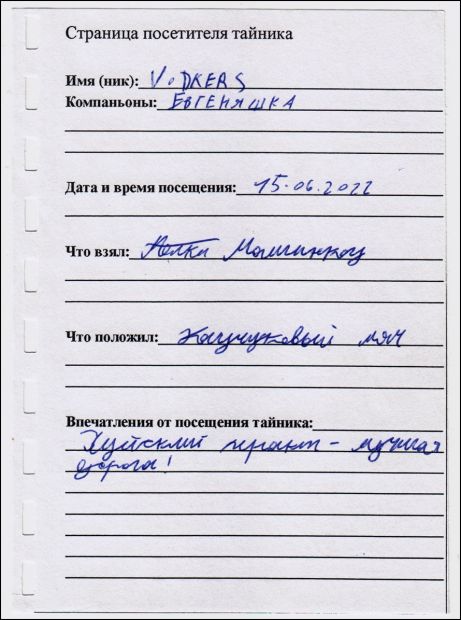 Страница посетителя тайника
Имя (ник): VODKERS
Компаньоны: ЕВГЕНЯШКА
Дата и время посещения: 15.06.2022
Что взял: Машинку
Что положил: Каучуковый мяч
Впечатления от посещения тайника:
тракт - лучшая
дорога!